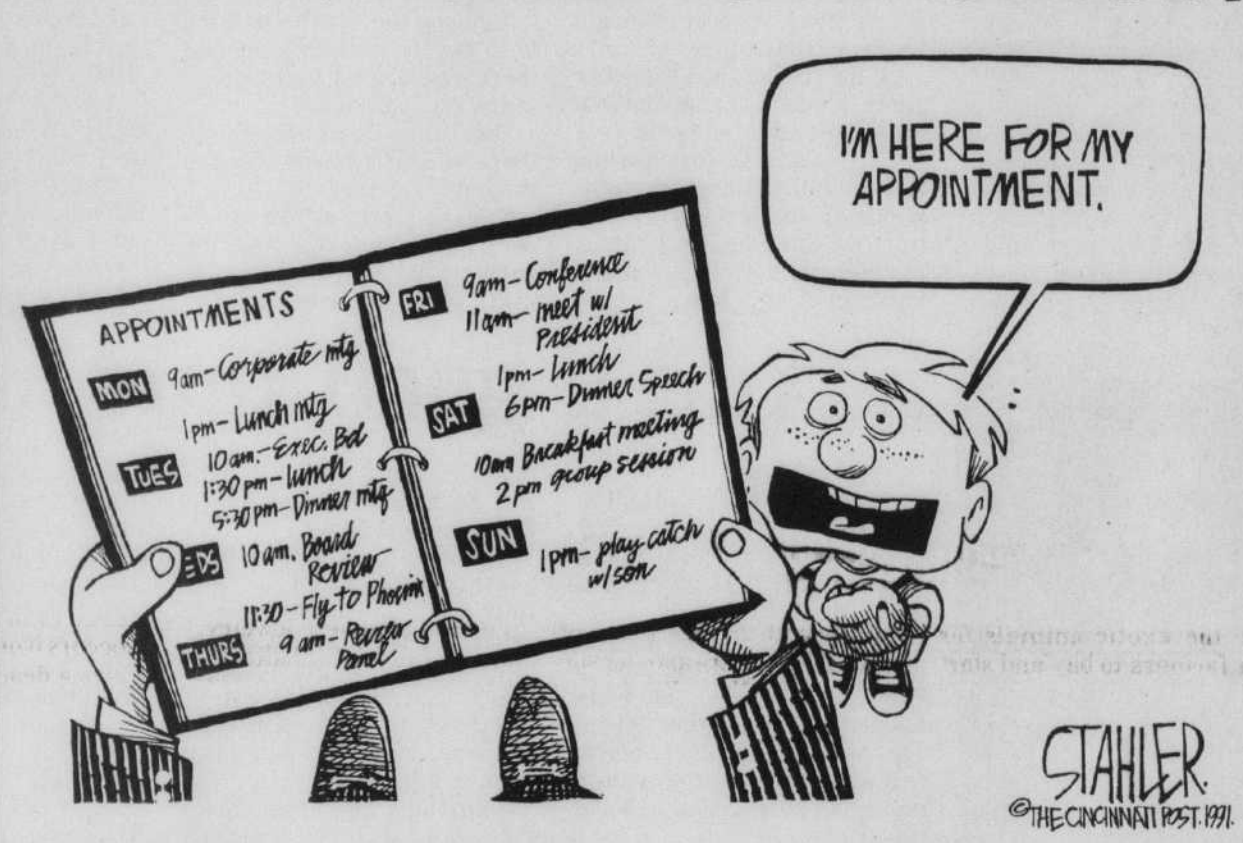 I'M HERE FOR MY
APPOINTMENT.
APPOINTMENTS
MON
9am-Corporate mtg
1pm-Lunch mtg
TUES
10am.-Exec. Bd
1:30 pm-lunch
5:30 pm-Dinner mtg
EDS
10 am. Board
Review
11:30-Fly to Phoenix
THURS
9 am-Review
Panel
FRI
9am-Conference
11am-meet w/
President
1pm-Lunch
6pm-Dinner Speech
SAT
10am Breakfast meeting
2 pm group session
SUN
1pm-play catch
w/son
STAHLER.
©THE CINCINNATI POST.1991.